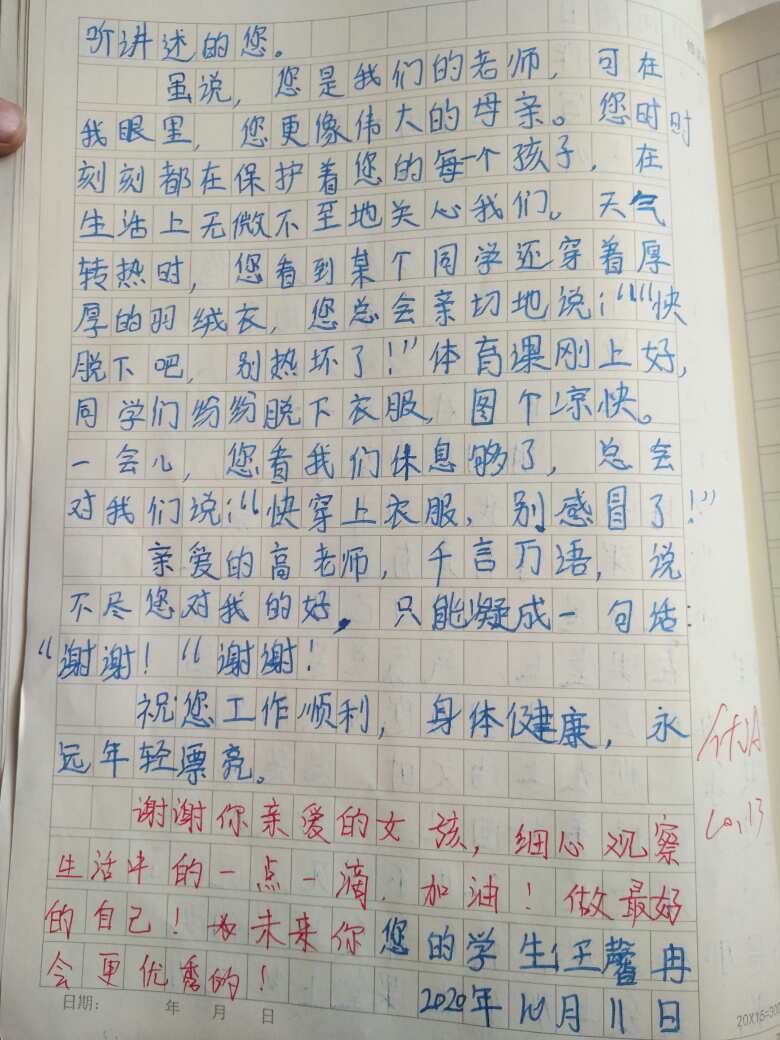 听讲述的您。
虽说，您是我们的老师，可在
我眼里，您更像伟大的母亲。您时时
刻刻都在保护着您的每一个孩子，在
生活上无微不至地关心我们。天气
转热时，您看到某个同学还穿着厚
厚的羽绒衣，您总会亲切地说：““快
脱下吧，别热坏了！”体育课刚上好，
同学们纷纷脱下衣服，图个凉快。
一会儿，您看我们休息够了，总会
对我们说：“快穿上衣服，别感冒了！”
亲爱的高老师，千言万语，说
不尽您对我的好，只能凝成一句话：
“谢谢！“谢谢！
祝您工作顺利，身体健康，永
远年轻漂亮。
谢谢你亲爱的女孩，细心观察
生活中的一点一滴，加油！做最好
的自己！未来你
会更优秀的！
您的学生：王馨冉
2020年10月11日
10.13
日期： 年 月 日